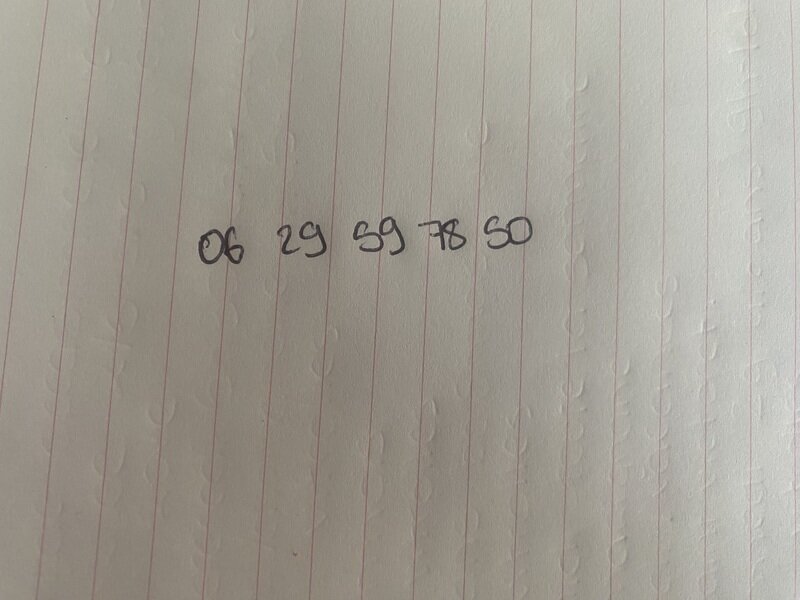 06 29 59 78 50